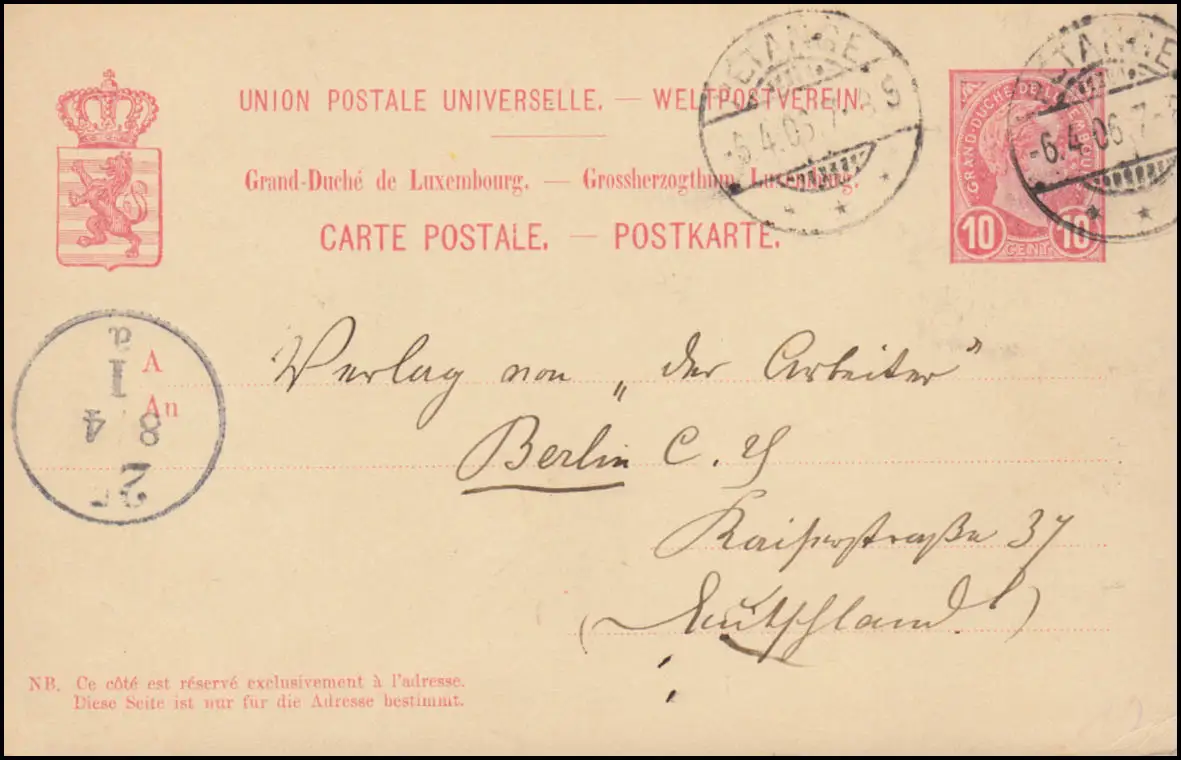 UNION POSTALE UNIVERSELLE. — WELTPOSTVEREIN.
Grand-Duché de Luxembourg. — Grossherzogthum Luxemburg.
CARTE POSTALE. — POSTKARTE.
-6.4.06.7-8 S
-6.4.06.7-
GRAND-DUCHÉ DE LUXEMBOURG
10 10
CENT.
A
An
a
1
8 4
Verlag von „der Arbeiter"
Berlin C.
Kaiserstraße 37
(Deutschland)
NB. Ce côté est réservé exclusivement à l'adresse.
Diese Seite ist nur für die Adresse bestimmt.